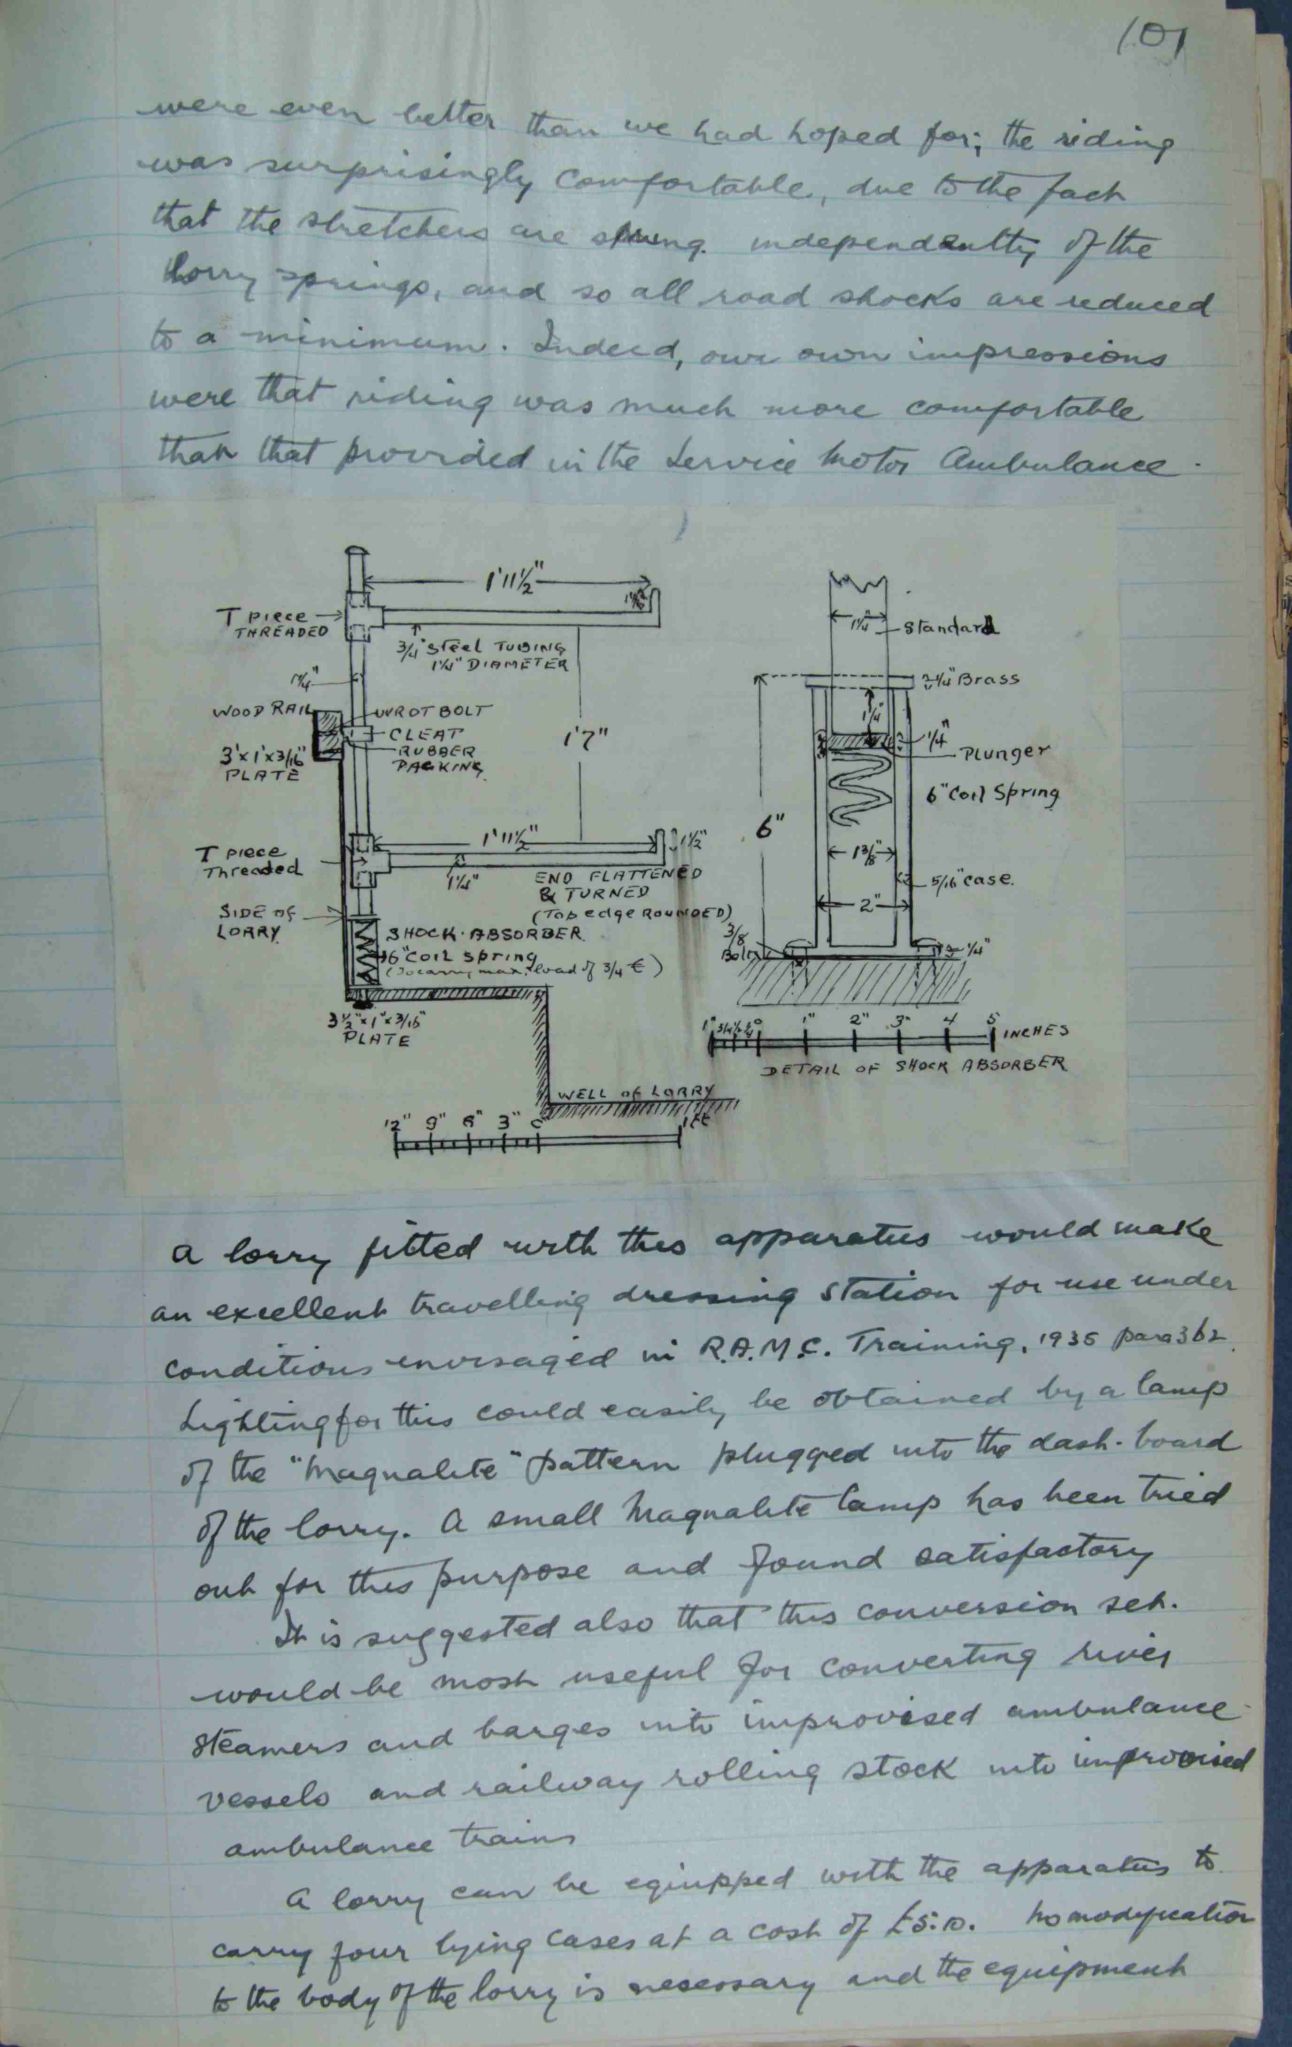 101
were even better than we had hoped for; the riding
was surprisingly comfortable, due to the fact
that the stretchers are sprung independently of the
lorry springs, and so all road shocks are reduced
to a minimum. Indeed, our own impressions
were that riding was much more comfortable
than that provided in the Service Motor Ambulance.
1'11½"
T PIECE
THREADED
¾" Steel TUBING
1¼" DIAMETER
1¼"
WOOD RAIL
WROT BOLT
CLEAT
RUBBER
PACKING
3"x1"x3/16"
PLATE
1'7"
1'11½"
1½"
T PIECE
Threaded
1¼"
END FLATTENED
& TURNED
(Top edge ROUNDED)
SIDE OF
LORRY
SHOCK-ABSORBER
6" Coil Spring
(To carry max. load of 3/4 )
3½"x1"x3/16"
PLATE
WELL of LORRY
12" 9" 6" 3" 0" 1 Ft
1¼"
Standard
¼" Brass
1¼"
¼"
Plunger
6" Coil Spring
6"
1⅜"
5/16" case.
2"
3/8
Bolt
¼"
1" ¾ ½ ¼ 0 1" 2" 3" 4 5 INCHES
DETAIL OF SHOCK ABSORBER
A lorry fitted with this apparatus would make
an excellent travelling dressing station for use under
conditions envisaged in R.A.M.C. Training, 1935 para 362.
Lighting for this could easily be obtained by a lamp
of the "Magnalite" pattern plugged into the dash-board
of the lorry. A small Magnalite lamp has been tried
out for this purpose and found satisfactory
It is suggested also that this conversion set.
would be most useful for converting river
steamers and barges into improvised ambulance
vessels and railway rolling stock into improvised
ambulance trains
A lorry can be equipped with the apparatus to
carry four lying cases at a cost of £5:10. No modification
to the body of the lorry is necessary and the equipment